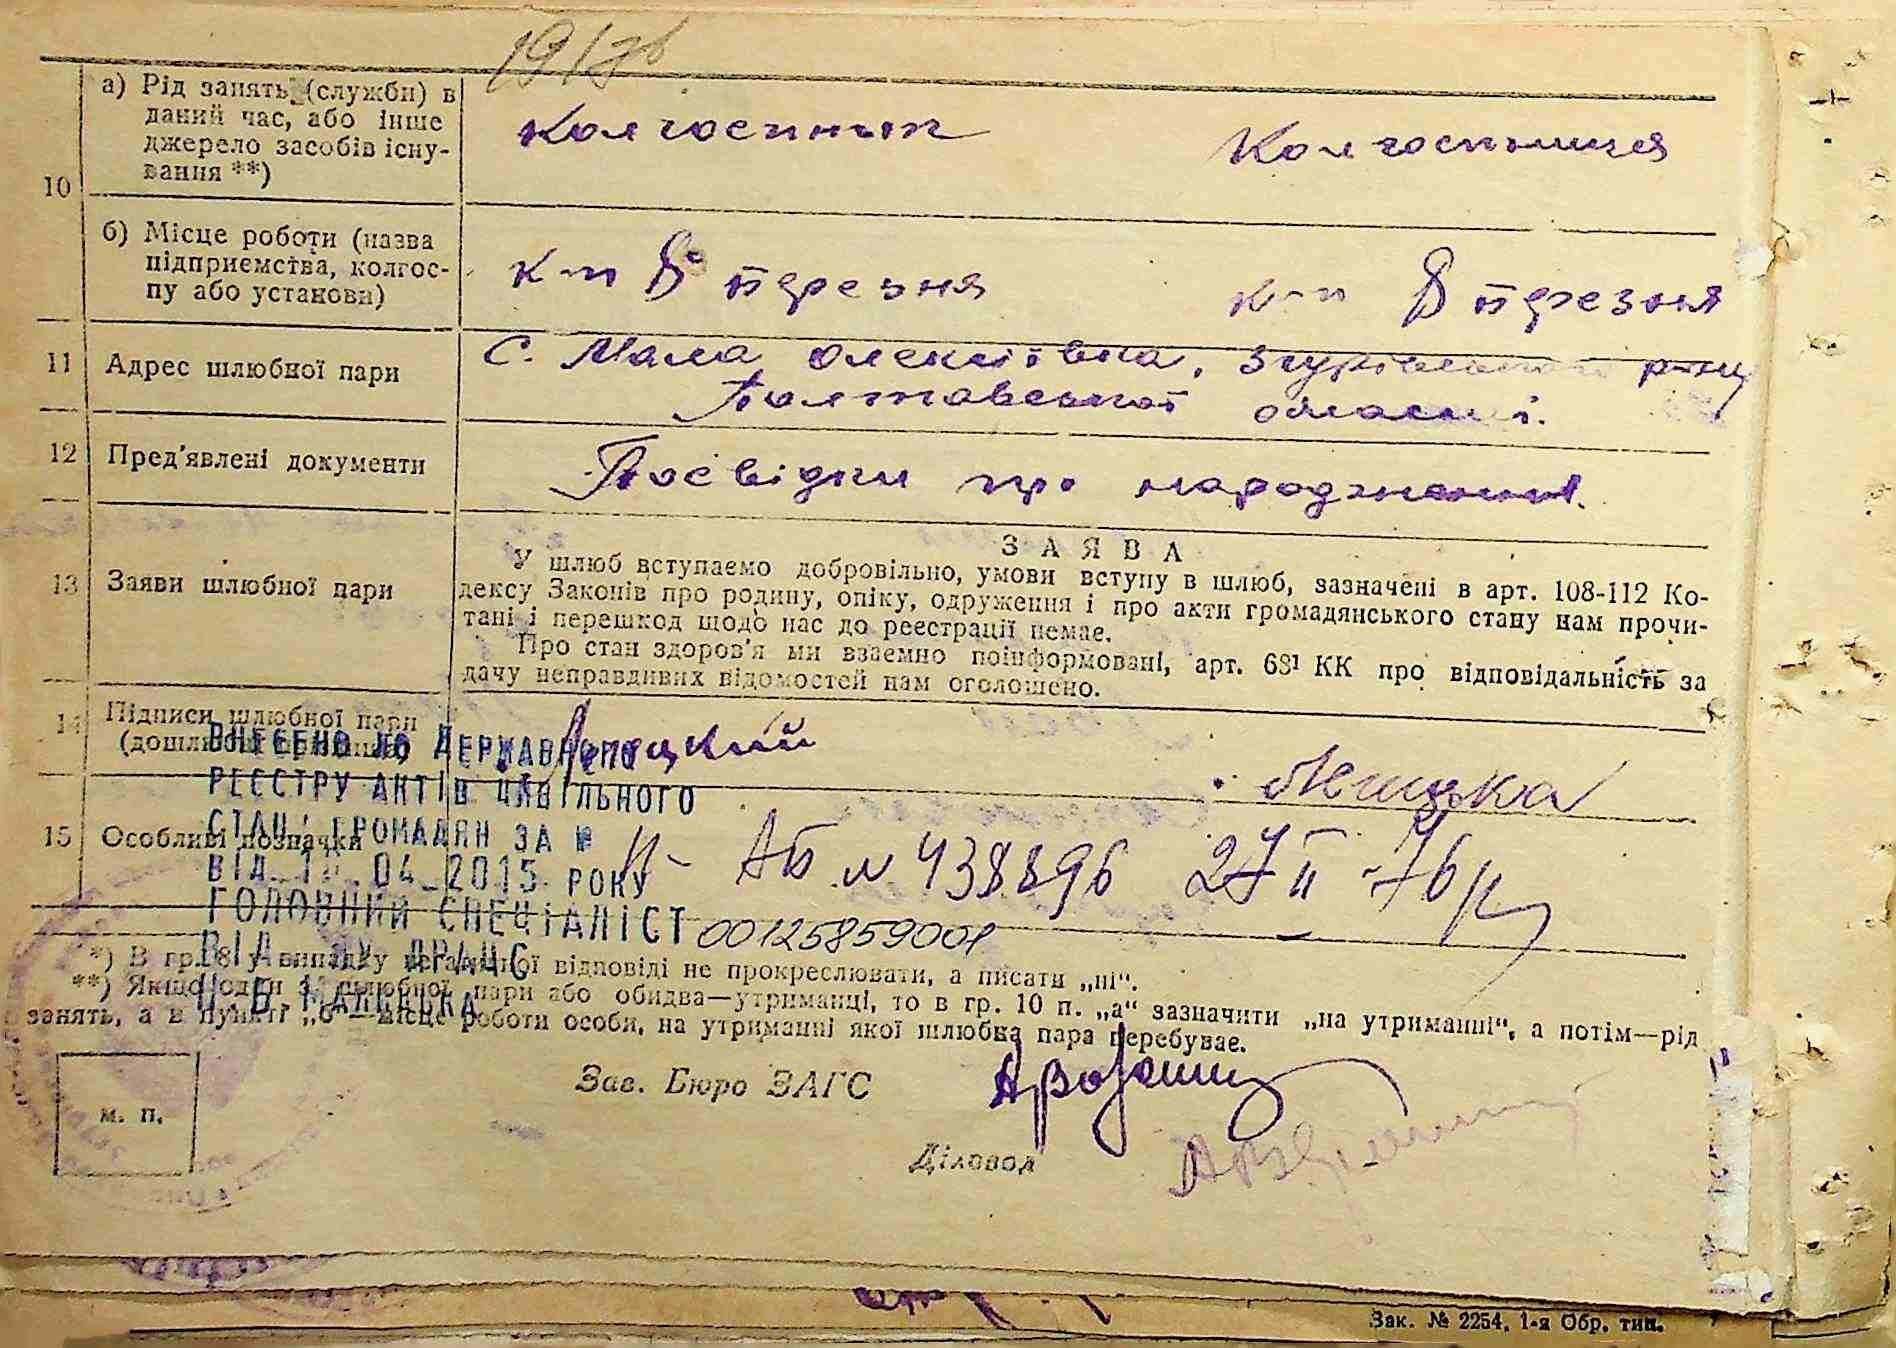 10
а) Рід занять (служби) в
даний час, або інше
джерело засобів існу-
вання **)
колгоспник
Колгоспниця
б) Місце роботи (назва
підприємства, колгос-
пу або установи)
к-п 8 березня
к-п 8 березня
11
Адрес шлюбної пари
с. Мала Олексіївка, Згурівського р-ну
Полтавської області.
12
Пред'явлені документи
Посвідки про народження.
13
Заяви шлюбної пари
ЗАЯВА
У шлюб вступаємо добровільно, умови вступу в шлюб, зазначені в арт. 108-112 Ко-
дексу Законів про родину, опіку, одруження і про акти громадянського стану нам прочи-
тані і перешкод щодо нас до реєстрації немає.
Про стан здоров'я ми взаємно поінформовані, арт. 68¹ КК про відповідальність за
дачу неправдивих відомостей нам оголошено.
14
Підписи шлюбної пари
ВНЕСЕНО ДО ДЕРЖАВНОГО
РЕЄСТРУ АКТІВ ЦИВІЛЬНОГО
СТАНУ ГРОМАДЯН ЗА №
04 2015 РОКУ
ГОЛОВНИЙ СПЕЦІАЛІСТ
00125859001
15
Особливі позначки
АБ № 438896 27 II -76р
*) В гр. 8 у випадку негативної відповіді не прокреслювати, а писати „ні“.
**) Якщо один з шлюбної пари або обидва—утриманці, то в гр. 10 п. „а“ зазначити „на утриманні“, а потім—рід
занять, а в пункті „б“—місце роботи особи, на утриманні якої шлюбна пара перебуває.
м. п.
Зав. Бюро ЗАГС
Діловод
Зак. № 2254, 1-я Обр. тип.